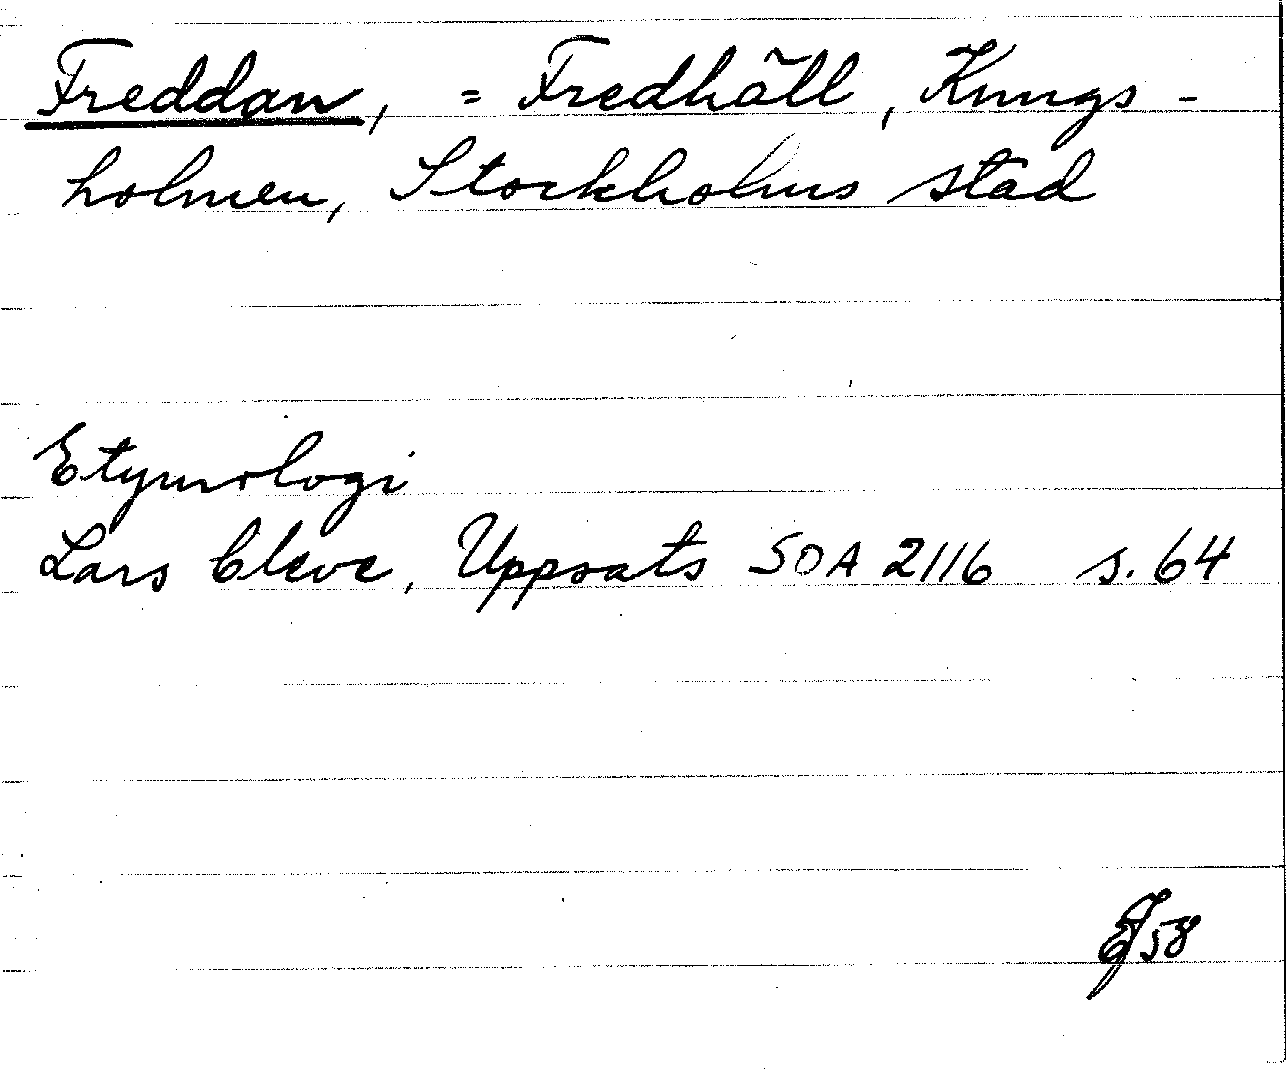 Freddan, = Fredhäll, Kungs-
holmen, Stockholms stad
Etymologi
Lars Cleve, Uppsats SOA 2116 s. 64
58